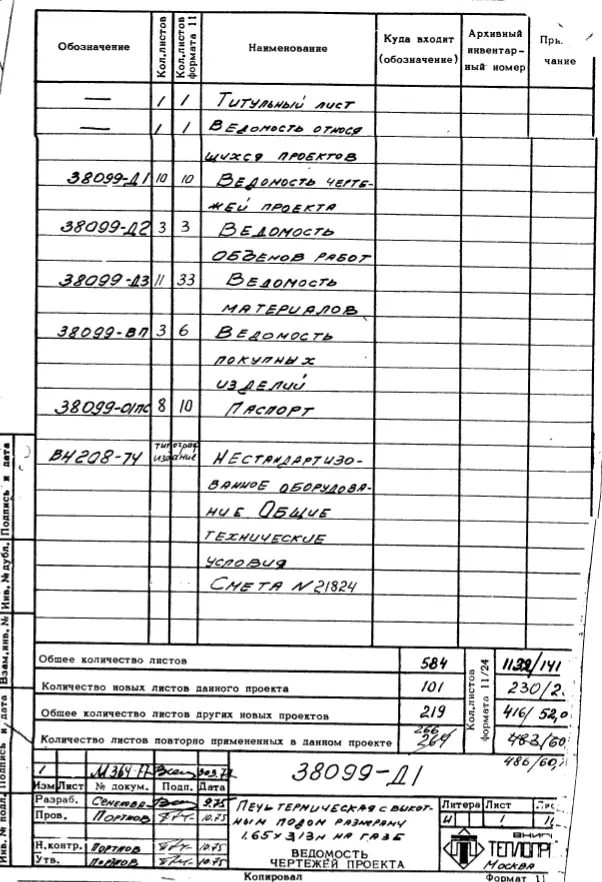 Обозначение Кол.листов Кол.листов формата 11 Наименование Куда входит (обозначение) Архивный инвентарный номер При чание
— 1 1 Титульный лист
— 1 1 Ведомость относя
щихся проектов
38099-Д1 10 10 Ведомость черте-
жей проекта
38099-Д2 3 3 Ведомость
объемов работ
38099-Д3 11 33 Ведомость
материалов
38099-ВП 3 6 Ведомость
покупных
изделий
38099-01ПС 8 10 Паспорт
ВН208-74 типограф издание Нестандартизо-
ванное оборудова-
ние Общие
технические
условия
Смета N21824
Общее количество листов 584 Кол.листов формата 11/24 1132/141
Количество новых листов данного проекта 101 230/2
Общее количество листов других новых проектов 219 416/52,0
Количество листов повторно примененных в данном проекте 266 264 483/60
486/60,
1 М364-77 903.77 38099-Д1
Изм Лист № докум. Подп. Дата
Разраб. 9.75 Печь термическая с выкат- Литера Лист
Пров. Портнов 10.75 ным подом размерам И 1 11
1.65х3,13м на газе
Н.контр. Портнов 10.75 Ведомость ВНИПИ
Утв. Портнов 10.75 чертежей проекта ТЕПЛОПР Москва
Копировал Формат 11
Инв. № подл. Подпись и дата Взам.инв. № Инв. № дубл. Подпись и дата